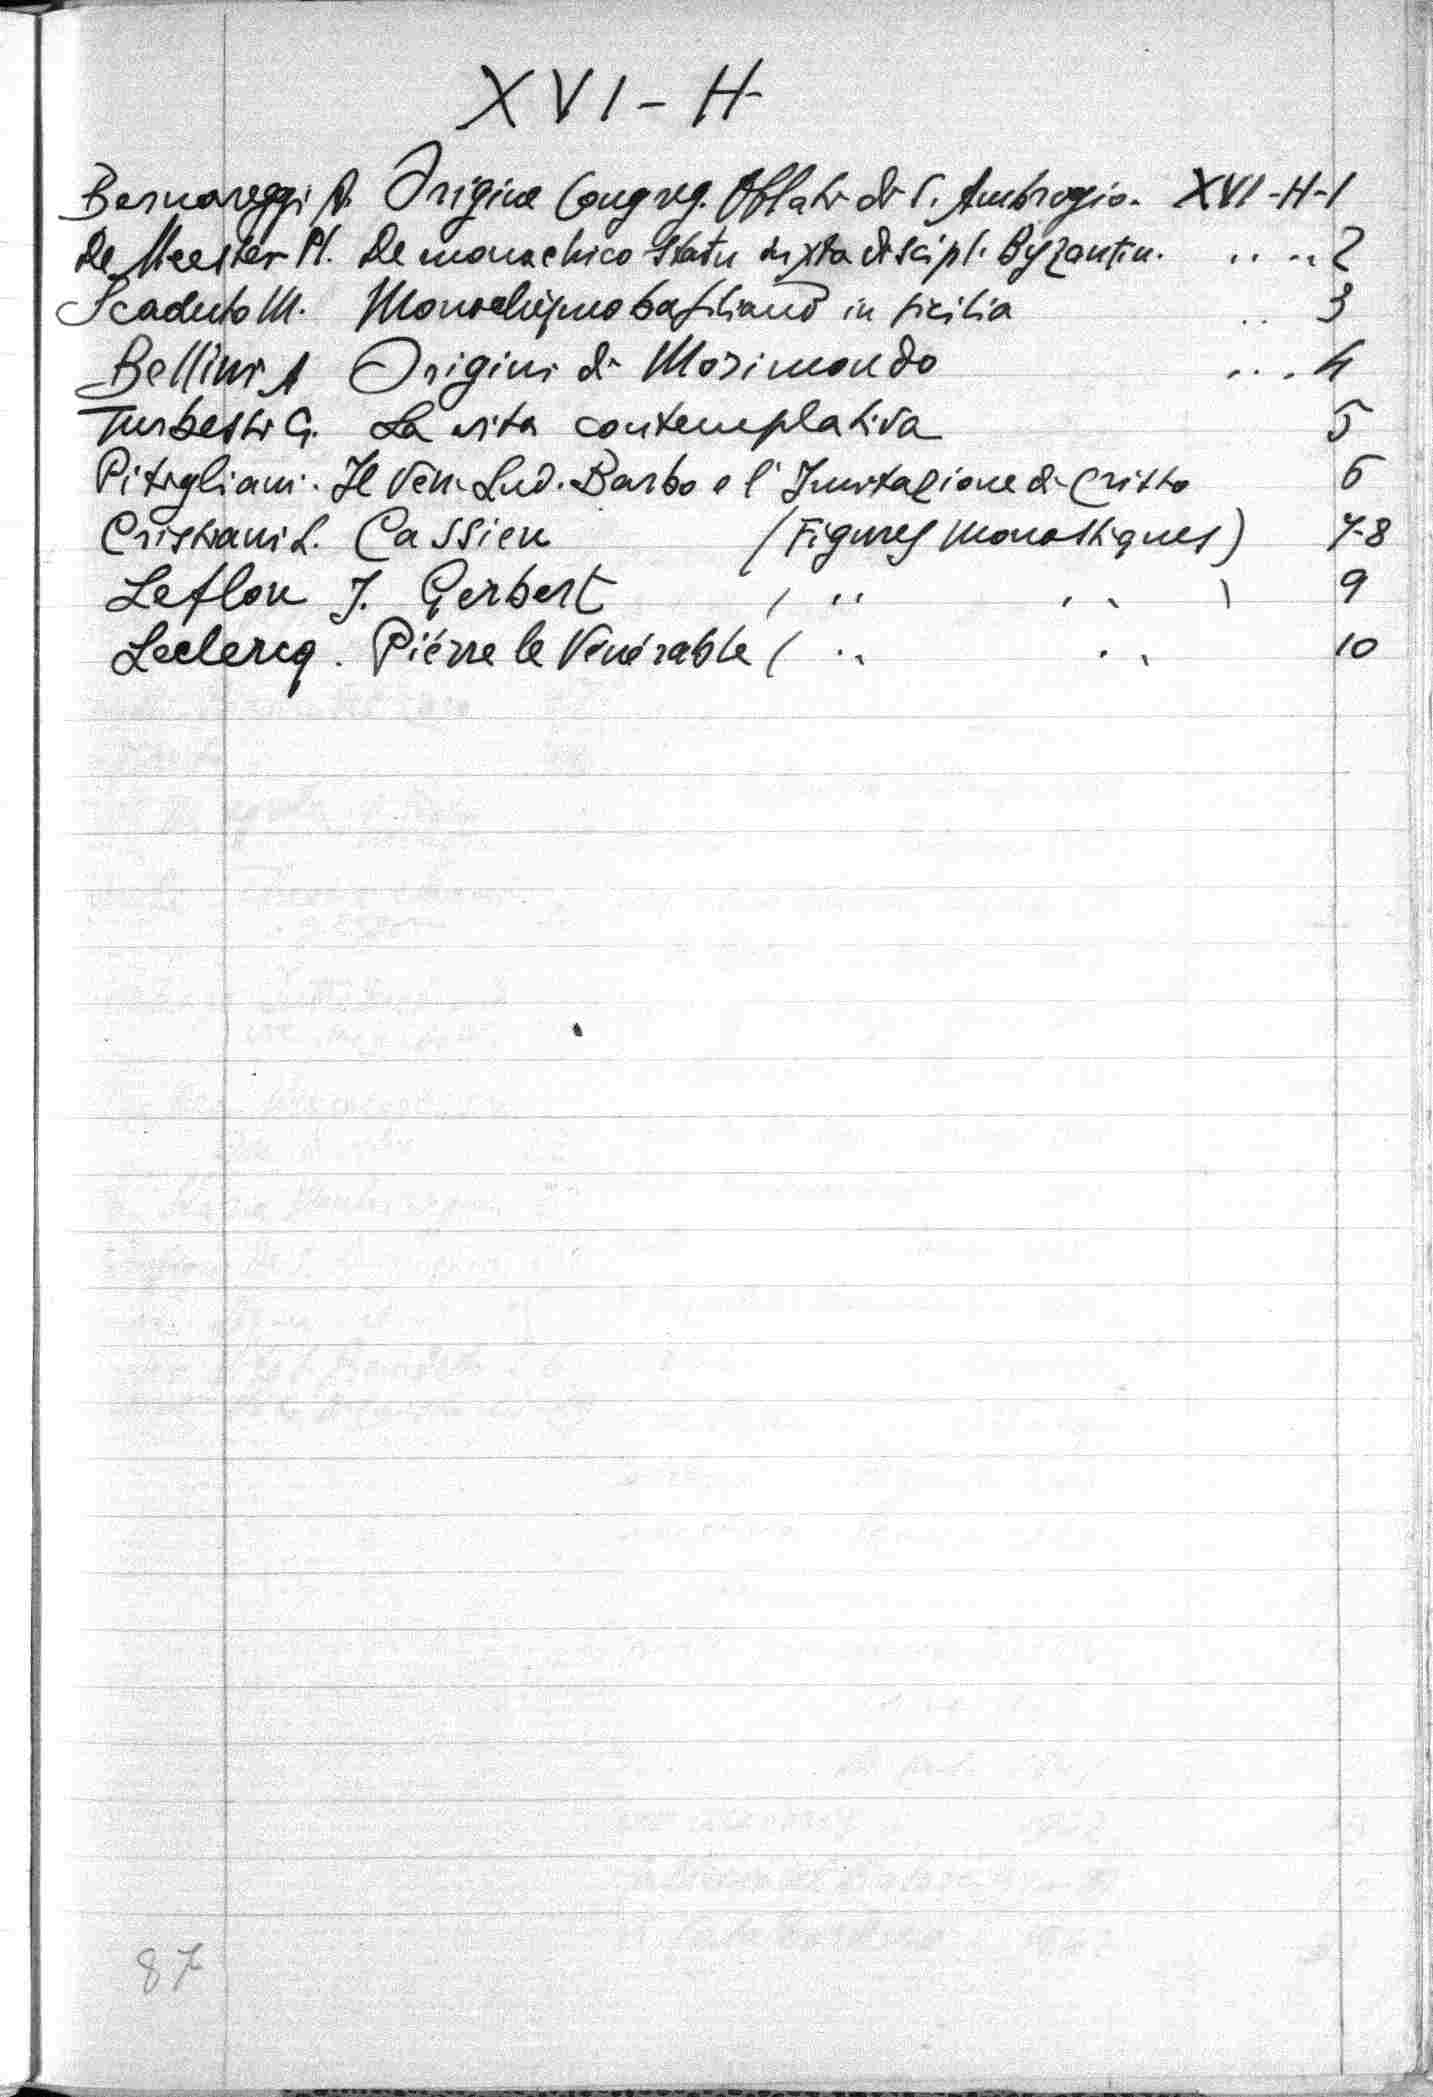 XVI-H-
Bernareggi A. Origine Congreg. Oblati di S. Ambrogio. XVI-H-1
De Meester Pl. De monachico statu iuxta discipl. Byzantin. .. .. 2
Scaduto M. Monachismo basiliano in Sicilia .. 3
Bellini A Origini di Morimondo .. .. 4
Turbessi G. La vita contemplativa 5
Pitigliani. Il Ven. Lud. Barbo e l'Imitazione di Cristo 6
Cristiani L. Cassien (Figures Monastiques) 7-8
Leflon J. Gerbert ( .. .. ) 9
Leclercq. Pierre le Vénérable ( .. .. 10
87